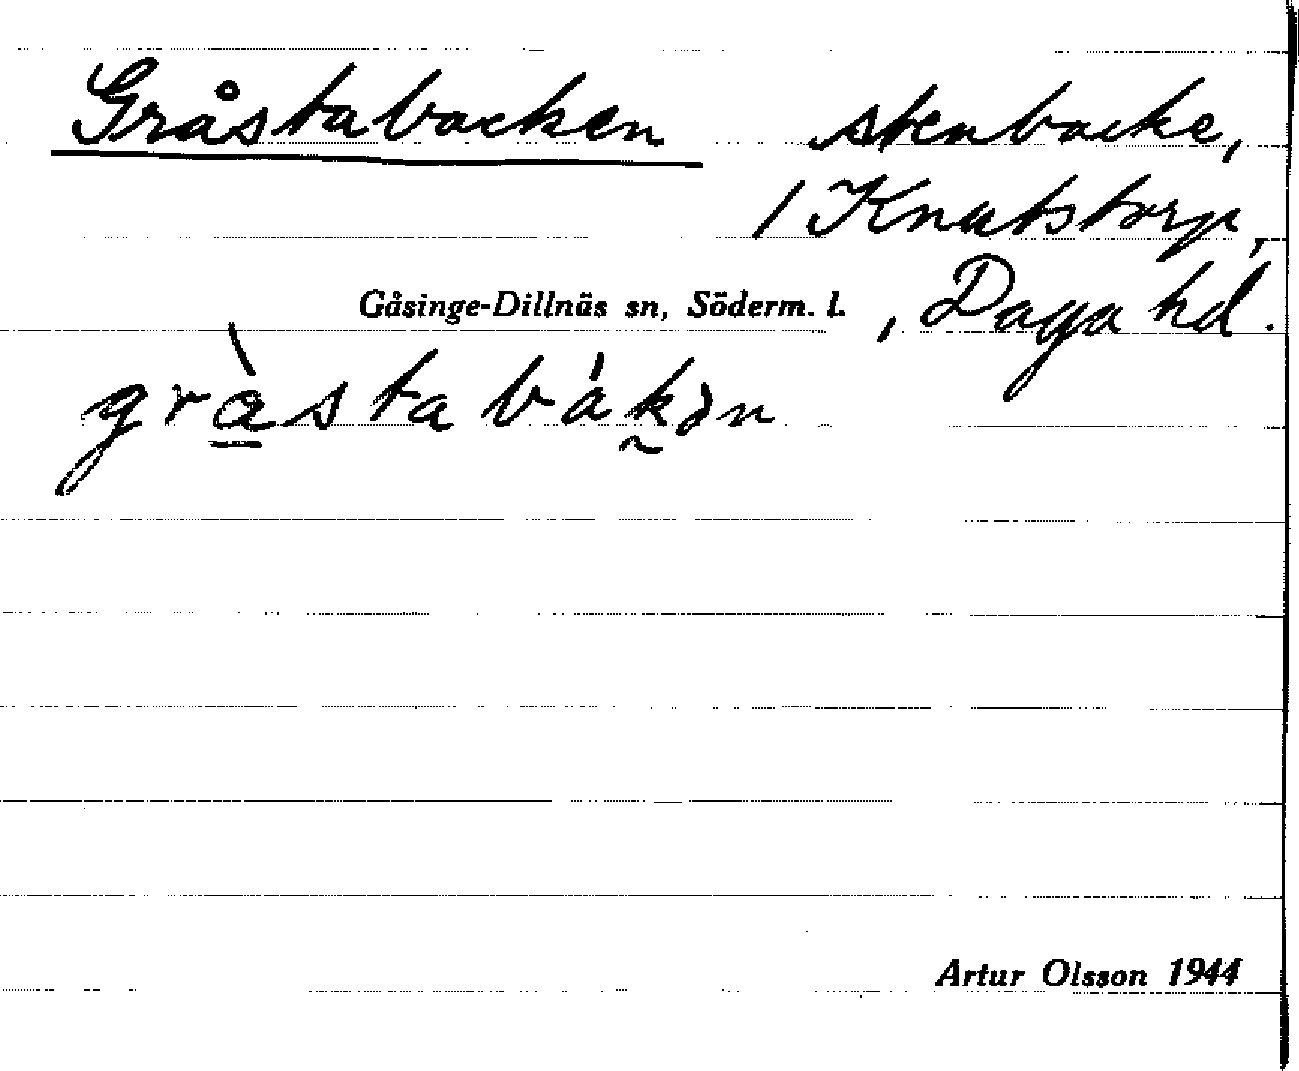 Gråstabacken stenbacke,
/ Knutstorp,
Gåsinge-Dillnäs sn, Söderm. l. , Daga hd.
gràstabákən
Artur Olsson 1944